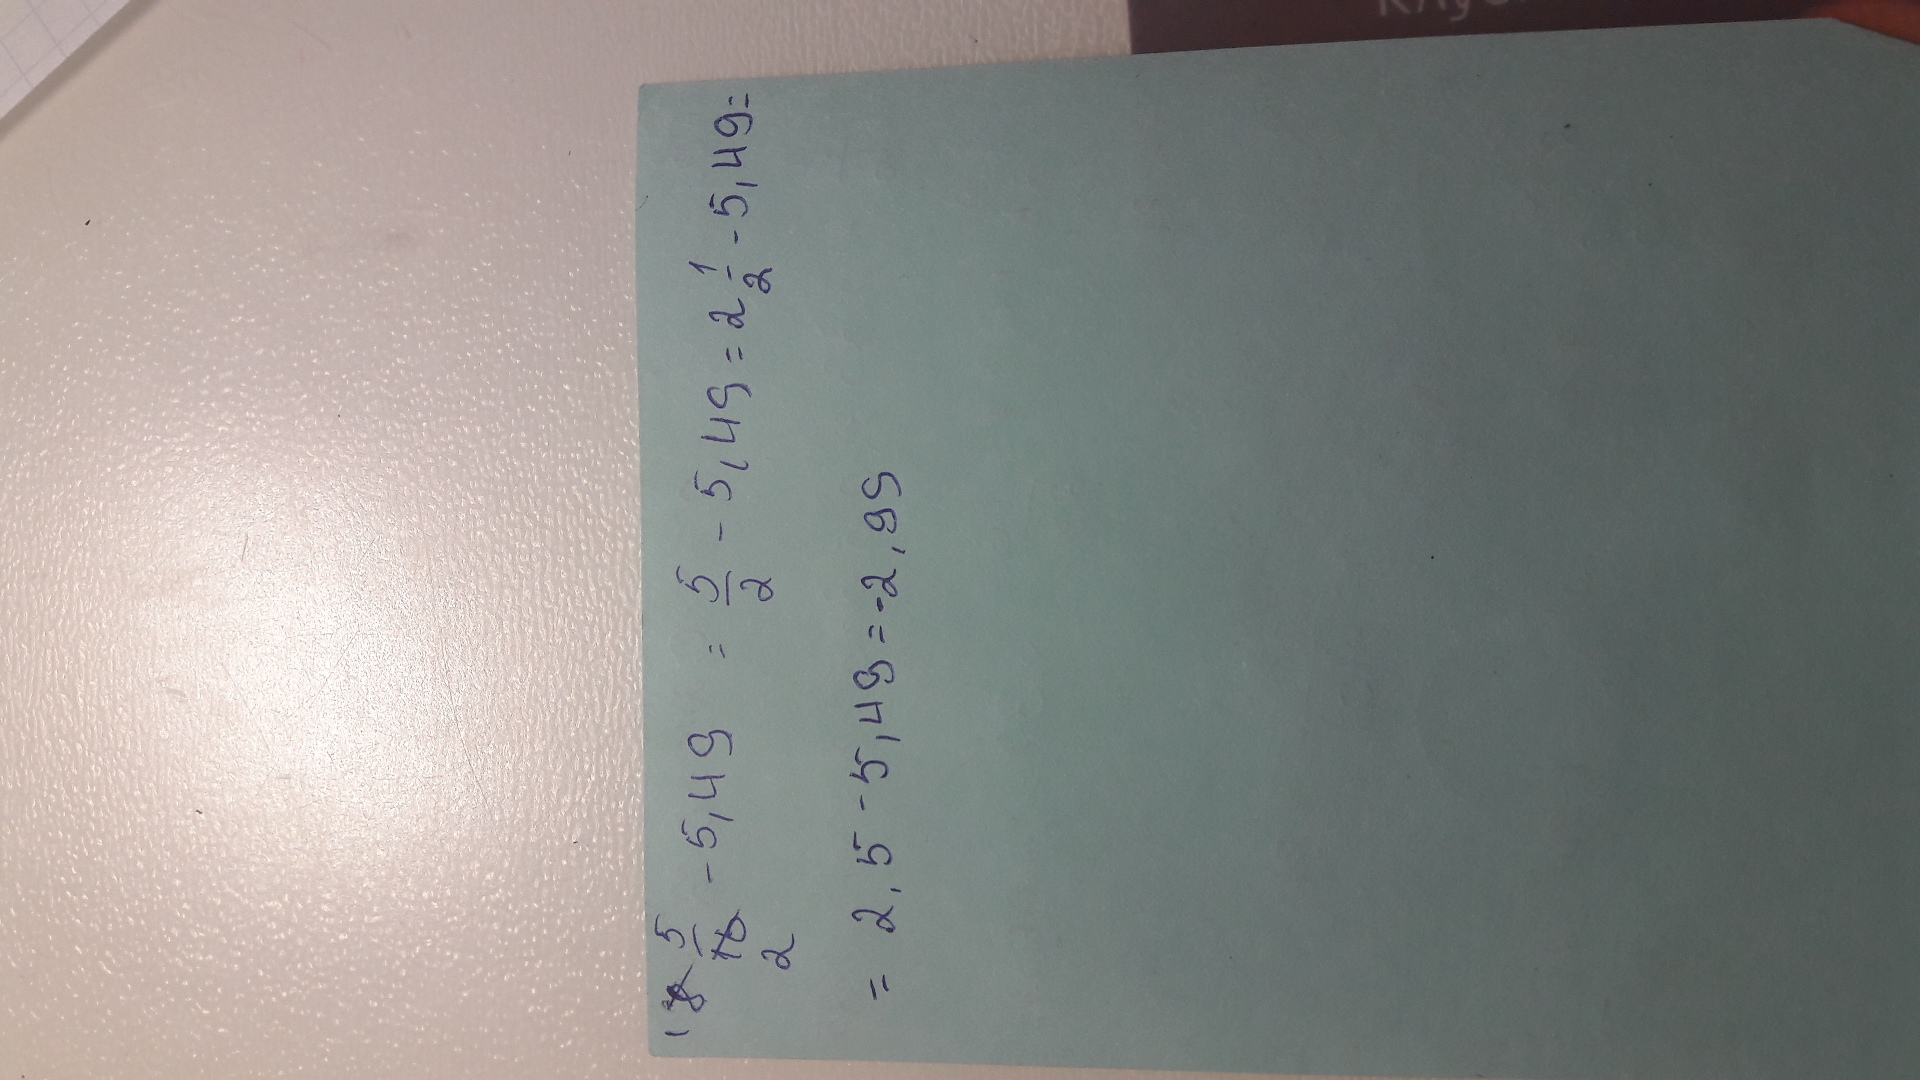 1 8 5/16 2 - 5,49 = 5/2 - 5,49 = 2 1/2 - 5,49 =
= 2,5 - 5,49 = -2,99